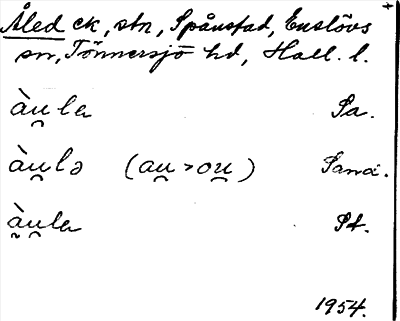 Åled ck, stn, Spånstad, Enslövs
sn, Tönnersjö hd, Hall. l.
àu̯la Sa.
àu̯lə (au̯ > ou̯) Sand.
àu̯la St.
1954.